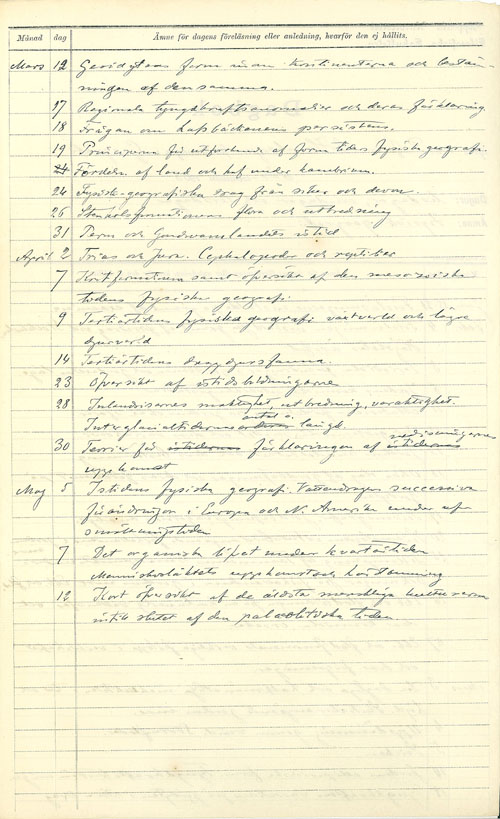 Månad dag Ämne för dagens föreläsning eller anledning, hvarför den ej hållits.
Mars 12 Geoidytans form inom kontinenterna och bestäm-
ningen af den samma.
17 Regionala tyngdkraftsanomalier och deras förklaring
18 Frågan om hafsbäckenens persistens.
19 Principerna för utforskande af forntidens fysiska geografi.
24 Fördeln. af land och haf under kambrium.
24 Fysisk-geografiska drag från silur och devon
26 Stenkolsformationens flora och utbredning
31 Perm och Gondwanalandets istid
April 2 Trias och Jura. Cephalopoder och reptilier
7 Kritformationen samt öfversikt af den mesozoiska
tidens fysiska geografi.
9 Tertiärtidens fysiska geografi växtverld och lägre
djurverld
14 Tertiärtidens däggdjursfauna.
23 Öfversikt af istidsbildningarne
28 Inlandsisarnes mäktighet, utbredning, varaktighet.
Interglacialtidernas antal o. längd.
30 Teorier för förklaringen af nedisningarnes
uppkomst
Maj 5 Istidens fysiska geografi. Vattendragens successiva
förändringar i Europa och N. Amerika under af-
smältningstiden
7 Det organiska lifvet under kvartärtiden
Människosläktets uppkomst och härstamning
12 Kort öfversikt af de äldsta menskliga kulturerna
intill slutet af den palaeolitiska tiden